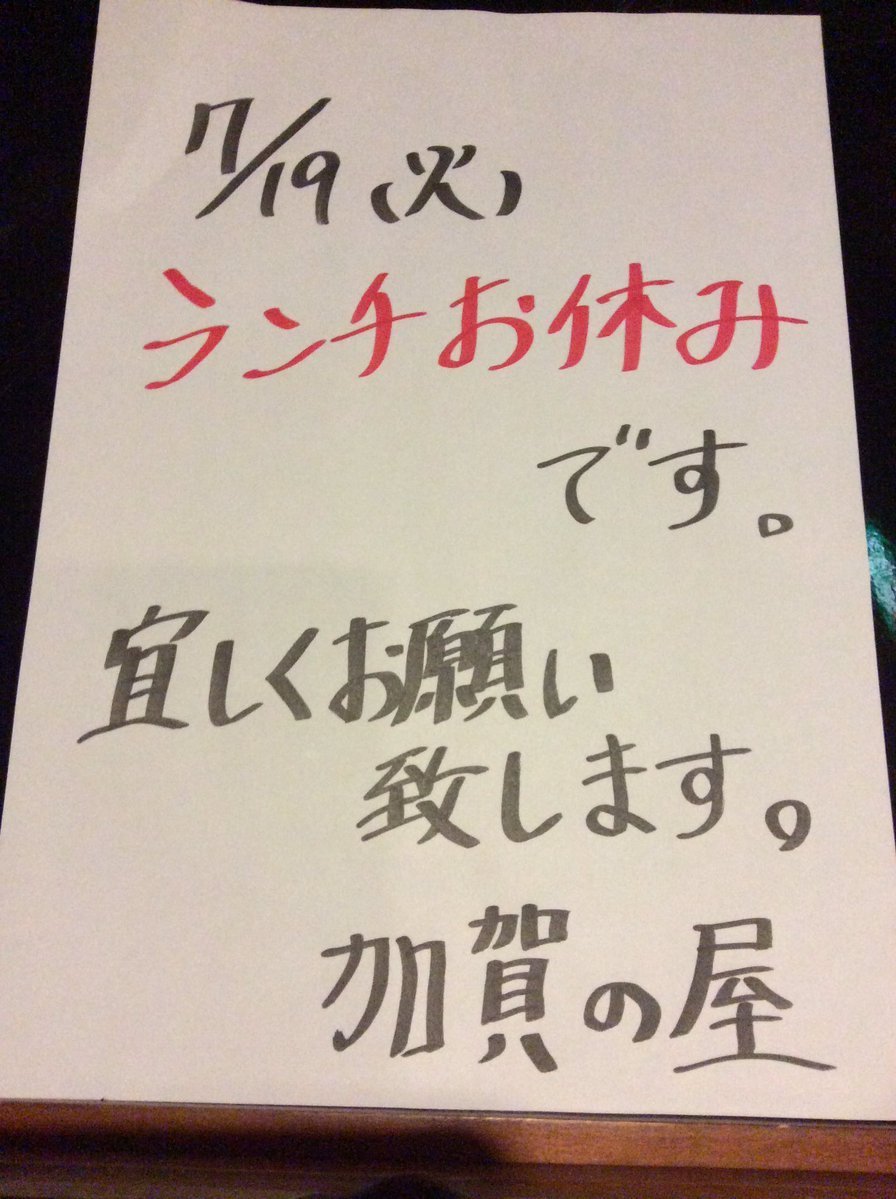 7/19(火)
ランチお休み
です。
宜しくお願い
致します。
加賀の屋